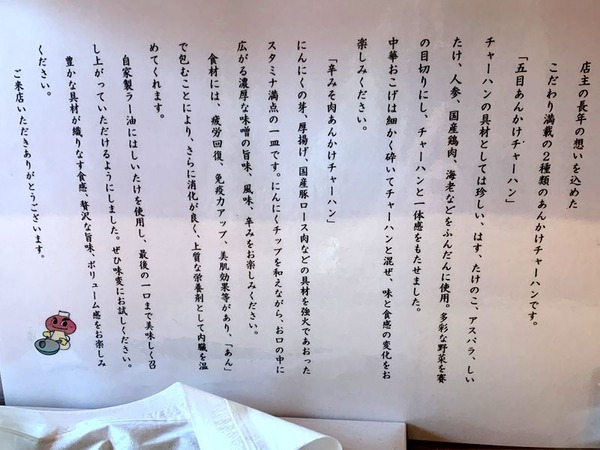 店主の長年の想いを込めた
こだわり満載の2種類のあんかけチャーハンです。
「五目あんかけチャーハン」
チャーハンの具材としては珍しい、はす、たけのこ、アスパラ、しい
たけ、人参、国産鶏肉、海老などをふんだんに使用。多彩な野菜を賽
の目切りにし、チャーハンと一体感をもたせました。
中華おこげは細かく砕いてチャーハンと混ぜ、味と食感の変化をお
楽しみください。
「辛みそ肉あんかけチャーハン」
にんにくの芽、厚揚げ、国産豚ロース肉などの具材を強火であおった
スタミナ満点の一皿です。にんにくチップを和えながら、お口の中に
広がる濃厚な味噌の旨味、風味、辛みをお楽しみください。
食材には、疲労回復、免疫力アップ、美肌効果等があり、「あん」
で包むことにより、さらに消化が良く、上質な栄養剤として内臓を温
めてくれます。
自家製ラー油にはしいたけを使用し、最後の一口まで美味しく召
し上がっていただけるようにしました。ぜひ味変にお試しください。
豊かな具材が織りなす食感、贅沢な旨味、ボリューム感をお楽しみ
ください。
ご来店いただきありがとうございます。